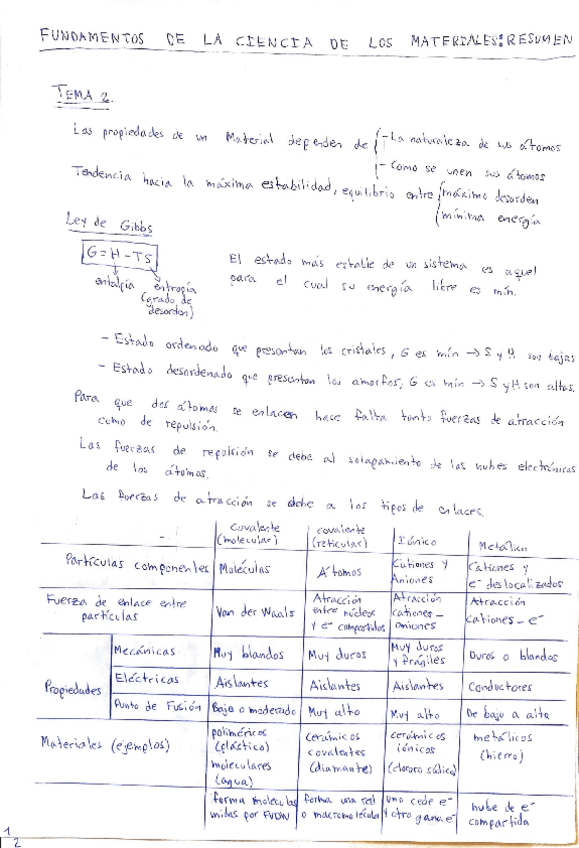 FUNDAMENTOS DE LA CIENCIA DE LOS MATERIALES: RESUMEN
TEMA 2.
Las propiedades de un Material dependen de { - La naturaleza de sus átomos
- Como se unen sus átomos
Tendencia hacia la máxima estabilidad, equilibrio entre { máximo desorden
mínima energía
Ley de Gibbs
G = H - TS
entalpía entropía
(grado de
desorden)
El estado más estable de un sistema es aquel
para el cual su energía libre es mín.
- Estado ordenado que presentan los cristales, G es mín → S y H son bajas
- Estado desordenado que presentan los amorfos, G es mín → S y H son altas.
Para que dos átomos se enlacen hace falta tanto fuerzas de atracción
como de repulsión.
Las fuerzas de repulsión se debe al solapamiento de las nubes electrónicas
de los átomos.
Las fuerzas de atracción se debe a los tipos de enlaces.
Covalente (molecular) covalente (reticular) Iónico Metálico
Partículas componentes Moléculas Átomos Cationes y Aniones Cationes y e⁻ deslocalizados
Fuerza de enlace entre partículas Van der Waals Atracción entre núcleos y e⁻ compartidos Atracción cationes - aniones Atracción cationes - e⁻
Propiedades
Mecánicas Muy blandos Muy duros Muy duros y frágiles Duros o blandos
Eléctricas Aislantes Aislantes Aislantes Conductores
Punto de Fusión Bajo o moderado Muy alto Muy alto De bajo a alto
Materiales (ejemplos) poliméricos (plástico) moleculares (agua) cerámicos covalentes (diamante) cerámicos iónicos (cloruro sódico) metálicos (hierro)
forma moléculas unidas por FVDW forma una red o macromolécula uno cede e⁻ y otro gana e⁻ nube de e⁻ compartida
1
2